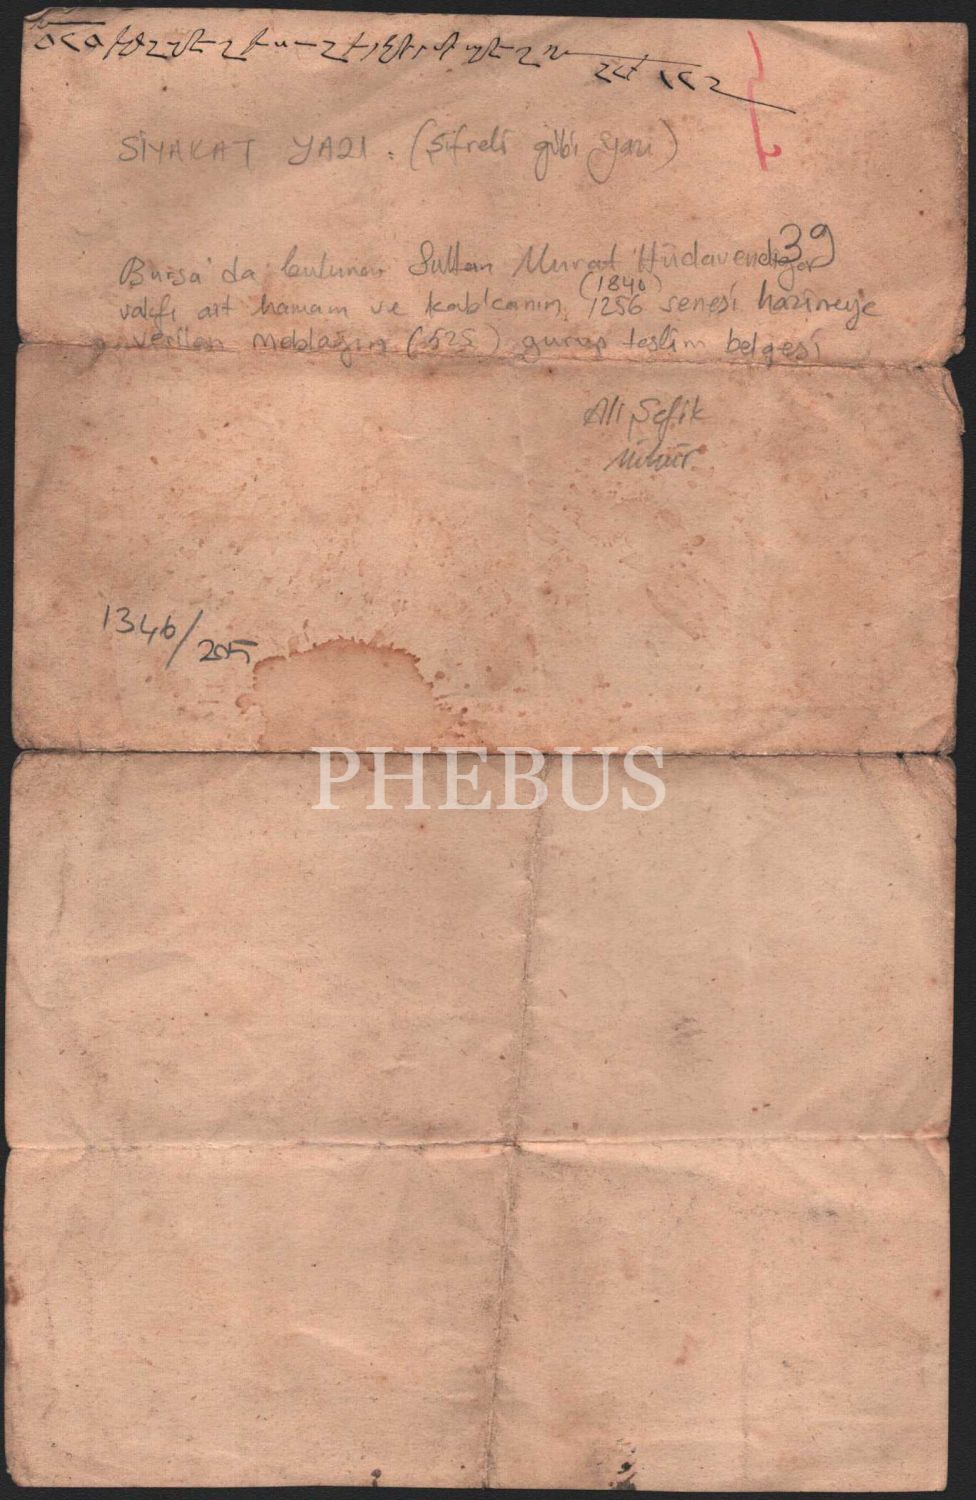 SİYAKAT YAZI : (Şifreli gibi yazı)
39
Bursa'da bulunan Sultan Murat Hüdavendigar
(1840)
vakfı ait hamam ve kablcanın 1256 senesi hazineye
verilen meblağın (525) guruş teslim belgesi
Ali Şefik
Mühür
1346/205
PHEBUS